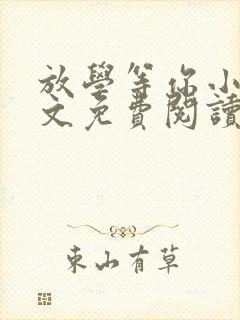 放學等你小
文免費閱讀
東山有草